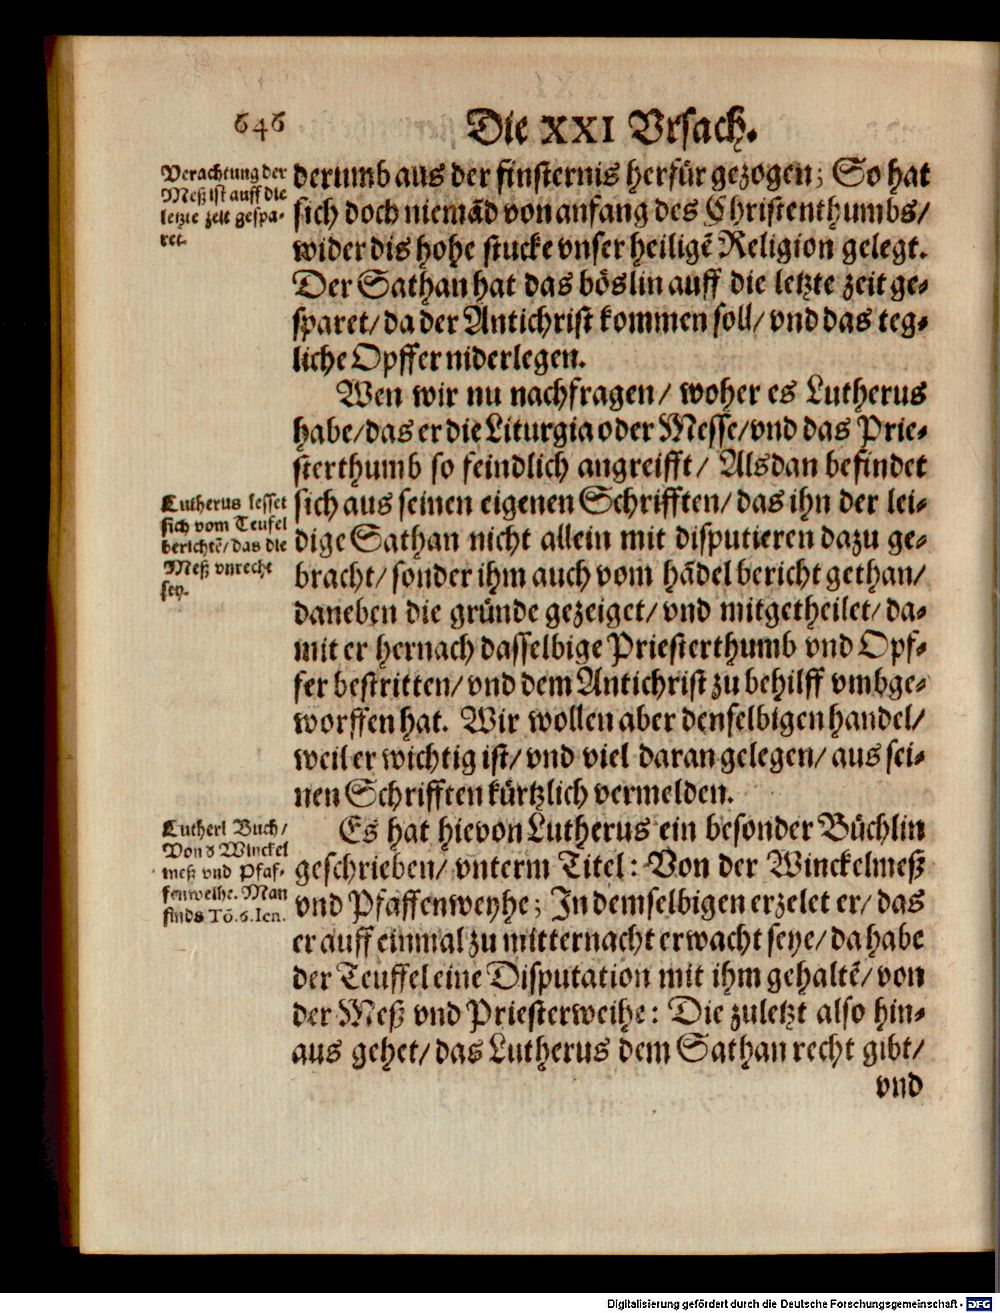 646
Die XXI Vrsach.
Verachtung der
Meß ist auff die
letzte zeit gespa-
ret.
derumb aus der finsternis herfür gezogen; So hat
sich doch niemãd von anfang des Christenthumbs/
wider dis hohe stucke vnser heiligẽ Religion gelegt.
Der Sathan hat das böslin auff die letzte zeit ge-
sparet/ da der Antichrist kommen soll/ vnd das teg-
liche Opffer niderlegen.
Wen wir nu nachfragen/ woher es Lutherus
habe/ das er die Liturgia oder Messe/ vnd das Prie-
sterthumb so feindlich angreifft/ Alsdan befindet
Lutherus lesset
sich vom Teufel
berichtẽ/ das die
Meß vnrecht
sey.
sich aus seinen eigenen Schrifften/ das ihn der lei-
dige Sathan nicht allein mit disputieren dazu ge-
bracht/ sonder ihm auch vom hãdel bericht gethan/
daneben die gründe gezeiget/ vnd mitgetheilet/ da-
mit er hernach dasselbige Priesterthumb vnd Opf-
fer bestritten/ vnd dem Antichrist zu behilff vmbge-
worffen hat. Wir wollen aber denselbigen handel/
weil er wichtig ist/ vnd viel daran gelegen/ aus sei-
nen Schrifften kürtzlich vermelden.
Lutheri Buch/
Von d Winckel
meß vnd Pfaf-
fenweihe. Man
finds Tõ. 6. Ien.
Es hat hievon Lutherus ein besonder Büchlin
geschrieben/ vnterm Titel: Von der Winckelmeß
vnd Pfaffenweyhe; In demselbigen erzelet er/ das
er auff einmal zu mitternacht erwacht seye/ da habe
der Teuffel eine Disputation mit ihm gehaltẽ/ von
der Meß vnd Priesterweihe: Die zuletzt also hin-
aus gehet/ das Lutherus dem Sathan recht gibt/
vnd
Digitalisierung gefördert durch die Deutsche Forschungsgemeinschaft - DFG